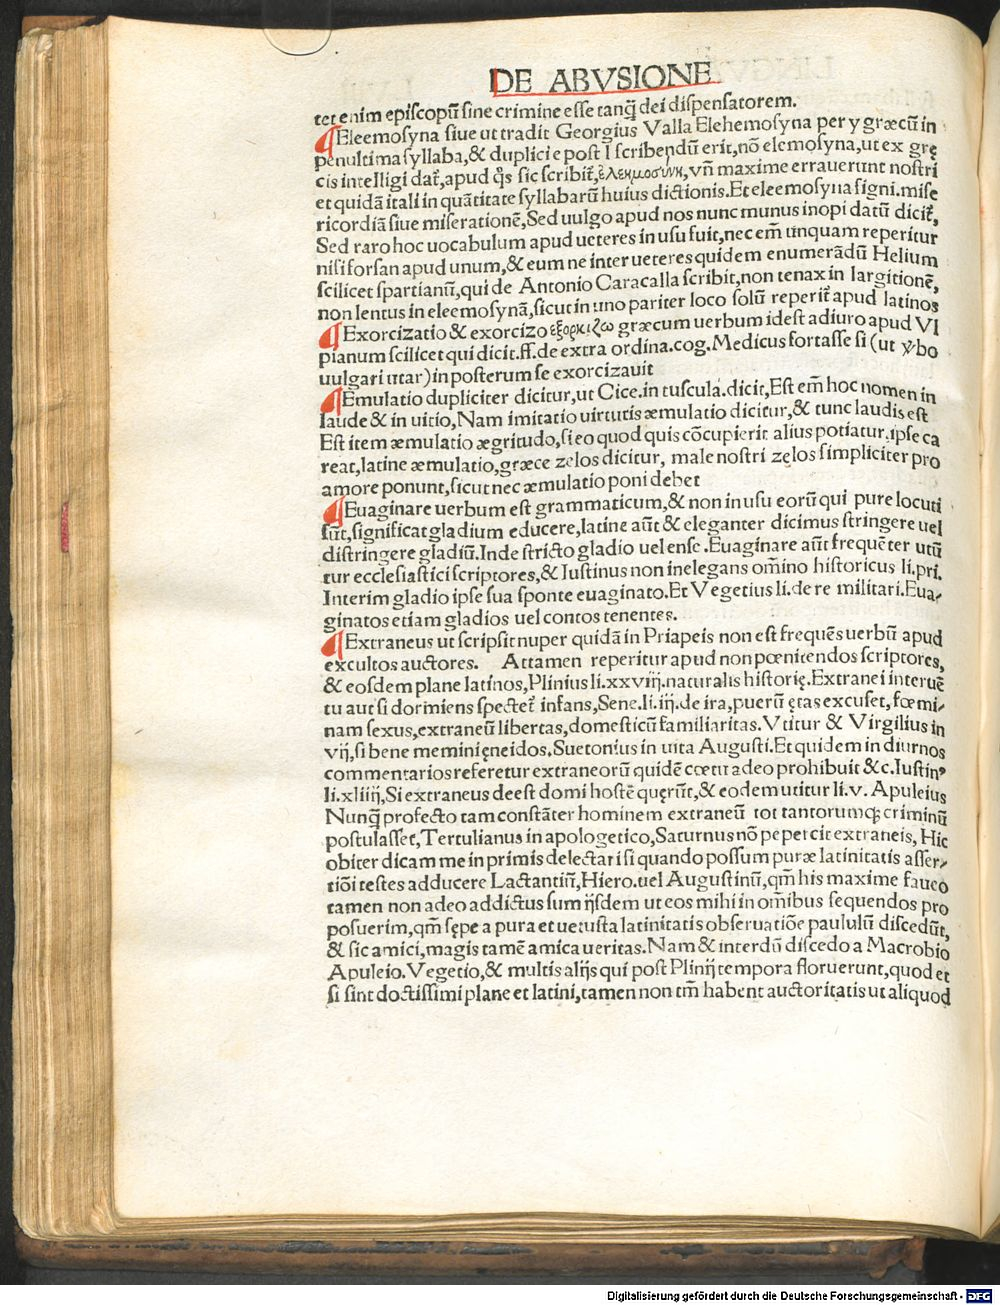 DE ABVSIONE
tet enim episcopũ sine crimine esse tanq̃ dei dispensatorem.
¶Eleemosyna siue ut tradit Georgius Valla Elehemosyna per y græcũ in
penultima syllaba,& duplici e post l scribendũ erit,nõ elemosyna,ut ex gręcis
cis intelligi dat̃,apud q̃s sic scribit̃,ἐλεημοσύνη,vñ maxime errauerunt nostri
et quidã itali in quãtitate syllabarũ huius dictionis.Et eleemosyna signi.mise
ricordiã siue miserationẽ,Sed uulgo apud nos nunc munus inopi datũ dicit̃,
Sed raro hoc uocabulum apud ueteres in usu fuit,nec em̃ unquam reperitur
nisi forsan apud unum,& eum ne inter ueteres quidem enumerãdũ Helium
scilicet spartianũ,qui de Antonio Caracalla scribit,non tenax in largitionẽ,
non lentus in eleemosynã,sicut in uno pariter loco solũ reperit̃ apud latinos
¶Exorcizatio & exorcizo εξορκιζω græcum uerbum idest adiuro apud Vl
pianum scilicet qui dicit.ff.de extra ordina.cog.Medicus fortasse si (ut v̸bo
uulgari utar) in posterum se exorcizauit
¶Emulatio dupliciter dicitur,ut Cice.in tuscula.dicit,Est em̃ hoc nomen in
laude & in uitio,Nam imitatio uirtutis æmulatio dicitur,& tunc laudis est
Est item æmulatio ægritudo,si eo quod quis cõcupierit alius potiatur.ipse ca
reat,latine æmulatio,græce zelos dicitur, male nostri zęlos simpliciter pro
amore ponunt,sicut nec æmulatio poni debet
¶Euaginare uerbum est grammaticum,& non in usu eorũ qui pure locuti
sũt,significat gladium educere,latine aũt & eleganter dicimus stringere uel
distringere gladiũ.Inde stricto gladio uel ense.Euaginare aũt frequẽter utũ
tur ecclesiastici scriptores,& Iustinus non inelegans om̃ino historicus li.pri.
Interim gladio ipse sua sponte euaginato.Et Vegetius li.de re militari.Eua⸗
ginatos etiam gladios uel contos tenentes.
¶Extraneus ut scripsit nuper quidã in Priapeis non est frequẽs uerbũ apud
excultos auctores. Attamen reperitur apud non pœnitendos scriptores,
& eosdem plane latinos,Plinius li.xxviij.naturalis historię.Extranei interuẽ
tu aut si dormiens spectet̃ infans,Sene.li.iij.de ira,puerũ ętas excuset,fœmi⸗
nam sexus,extraneũ libertas,domesticũ familiaritas.Vtitur & Virgilius in
vij,si bene memini ęneidos.Suetonius in uita Augusti.Et quidem in diurnos
commentarios referetur extraneorũ quidẽ cœtu adeo prohibuit &c.Iustinꝰ
li.xliiij,Si extraneus deest domi hostẽ quęrũt,& eodem utitur li.v. Apuleius
Nunq̃ profecto tam constãter hominem extraneũ tot tantorumq; criminũ
postulasset,Tertulianus in apologetico,Saturnus nõ pepercit extraneis, Hic
obiter dicam me in primis delectari si quando possum puræ latinitatis asser⸗
tiõi testes adducere Lactantiũ,Hiero.uel Augustinũ,qm̃ his maxime faueo
tamen non adeo addictus sum ijsdem ut eos mihi in om̃ibus sequendos pro
posuerim,qm̃ sępe a pura et uetusta latinitatis obseruatiõe paululũ discedũt,
& sic amici,magis tamẽ amica ueritas.Nam & interdũ discedo a Macrobio
Apuleio.Vegetio,& multis alijs qui post Plinij tempora floruerunt,quod et
si sint doctissimi plane et latini,tamen non tm̃ habent auctoritatis ut aliquod
Digitalisierung gefördert durch die Deutsche Forschungsgemeinschaft - DFG